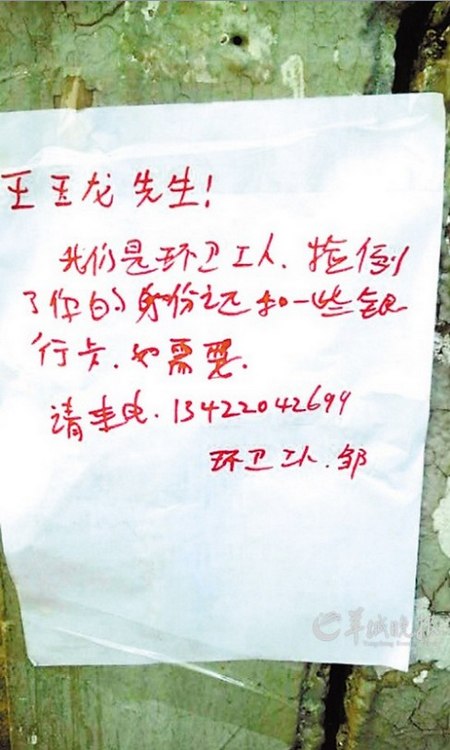 王玉龙先生!
我们是环卫工人.捡倒
了你的身份证和一些银
行卡.如需要.
请来电.13422042699
环卫工人.邹
羊城晚报